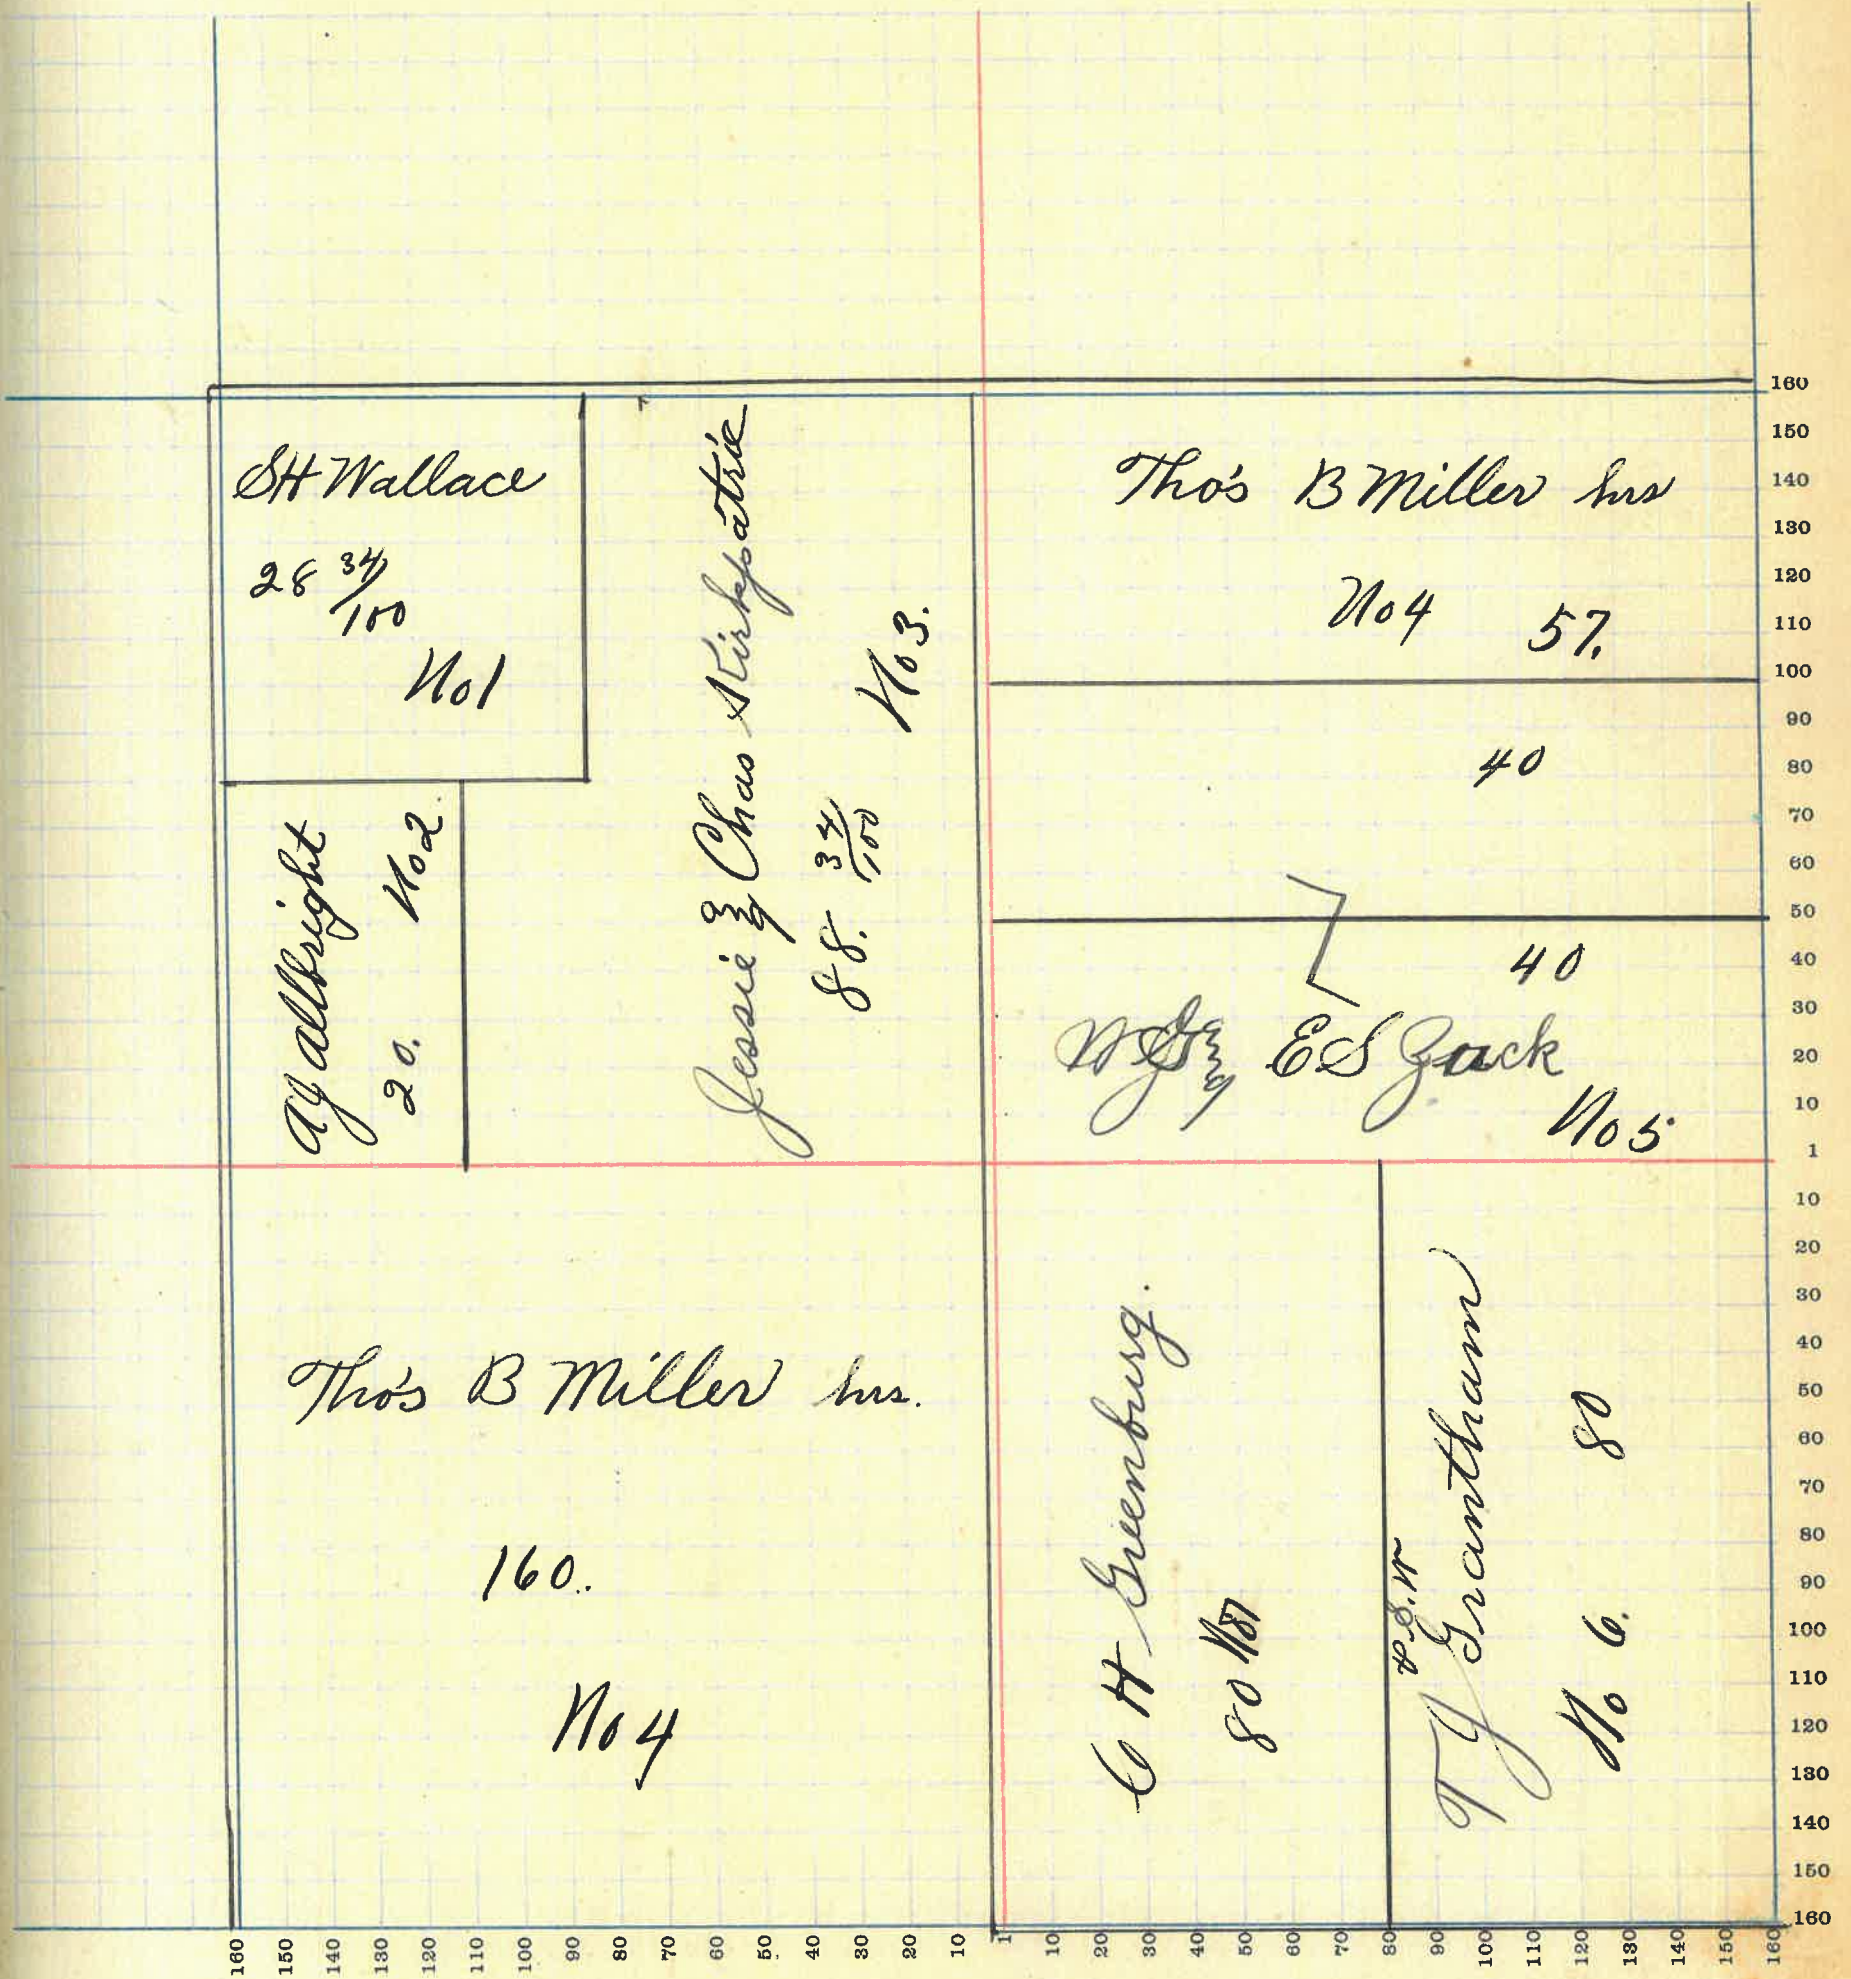 SH Wallace
28 34/100
No 1
AY Albright
20. No 2
Jessie & Chas Kirkpatric
88. 34/100 No 3.
Tho's B Miller hrs
No 4 57.
40
40
E S Zack
No 5
Tho's B Miller hrs.
160.
No 4
C H Greenburg.
80
T J Grantham
No 6. 80
160
150
140
130
120
110
100
90
80
70
60
50
40
30
20
10
1
10
20
30
40
50
60
70
80
90
100
110
120
130
140
150
160
160 150 140 130 120 110 100 90 80 70 60 50 40 30 20 10 1 10 20 30 40 50 60 70 80 90 100 110 120 130 140 150 160